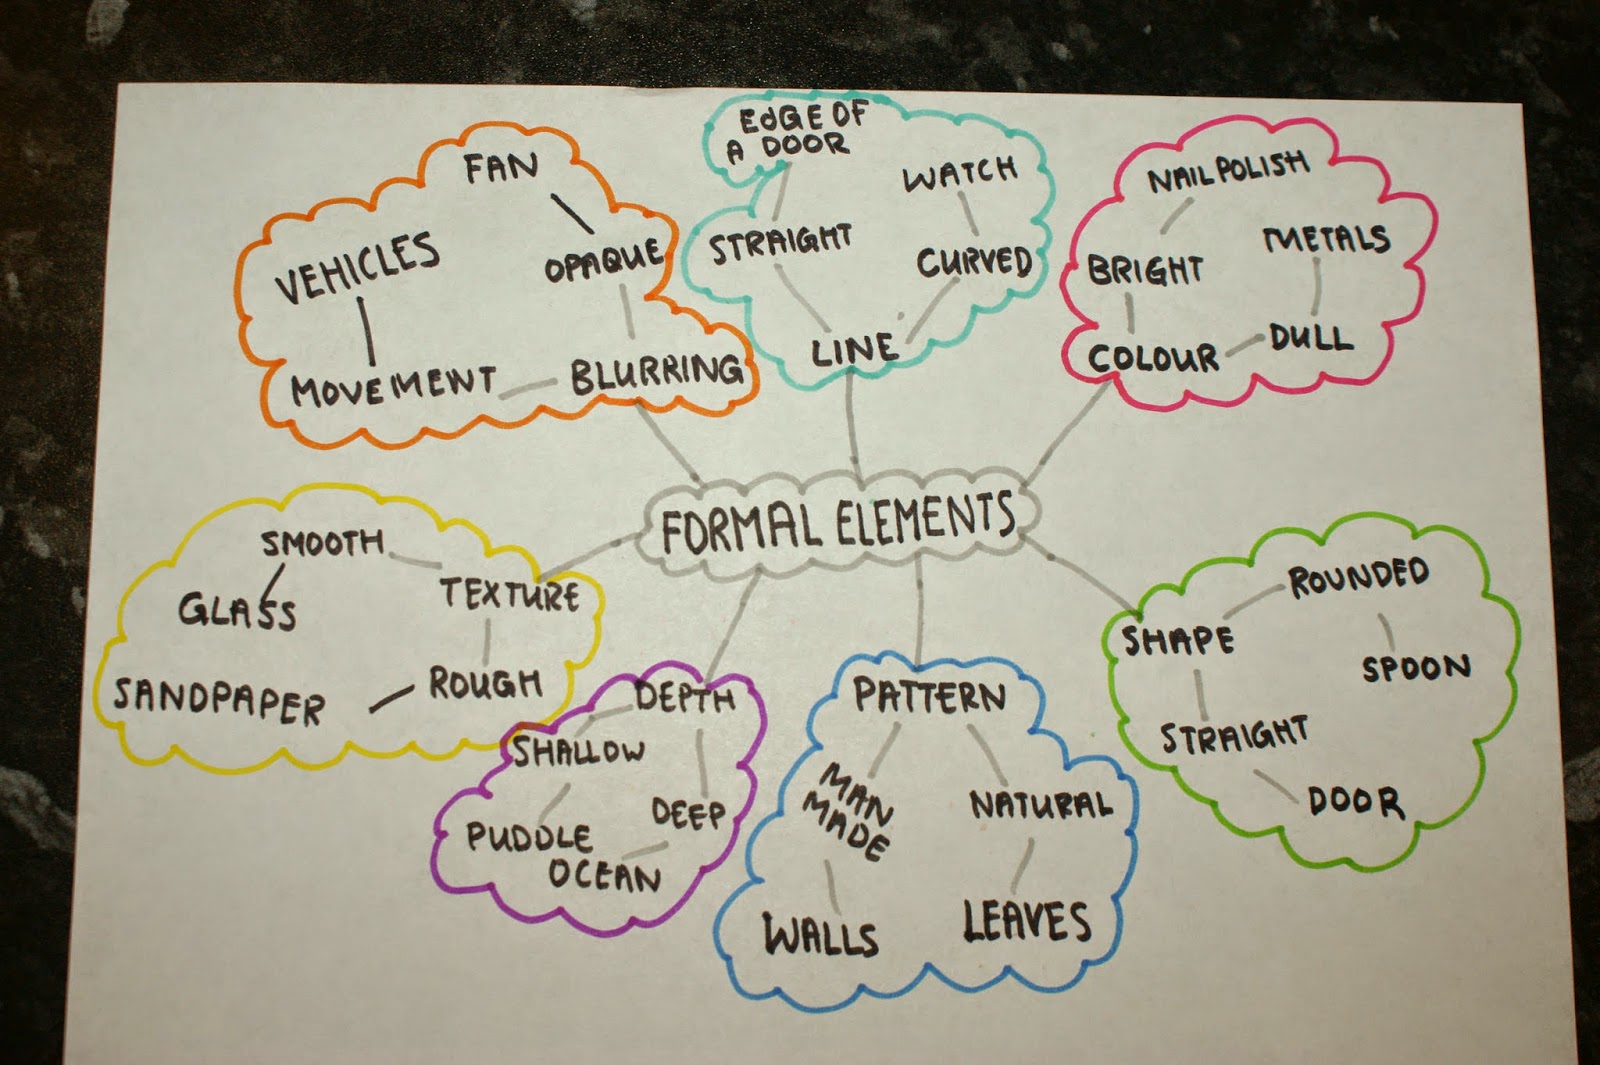 FAN
VEHICLES
OPAQUE
MOVEMENT
BLURRING
EdGE OF
A DOOR
WATCH
STRAIGHT
CURVED
LINE
NAIL POLISH
METALS
BRIGHT
DULL
COLOUR
FORMAL ELEMENTS
SMOOTH
TEXTURE
GLASS
ROUGH
SANDPAPER
DEPTH
SHALLOW
DEEP
PUDDLE
OCEAN
PATTERN
MAN
MADE
NATURAL
WALLS
LEAVES
ROUNDED
SHAPE
SPOON
STRAIGHT
DOOR